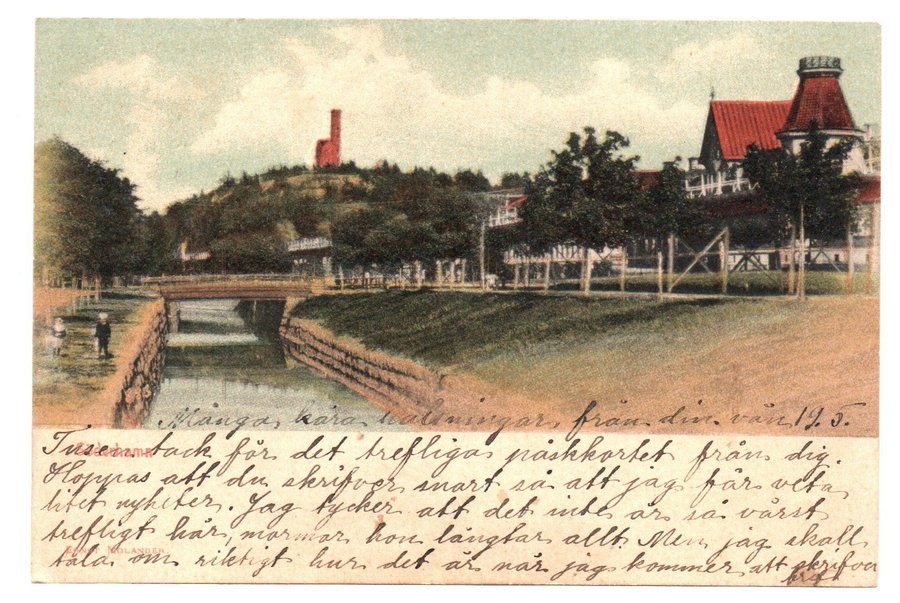 Många kära hälsningar från din vän I. S.
Tusen tack för det trefliga påskkortet från dig.
Söderhamn
Hoppas att du skrifver snart så att jag får veta
litet nyheter. Jag tycker att det inte är så värst
trefligt här, mormor hon längtar allt. Men jag skall
ERNST MOLANDER
tala om riktigt hur det är når jag kommer att skrifva